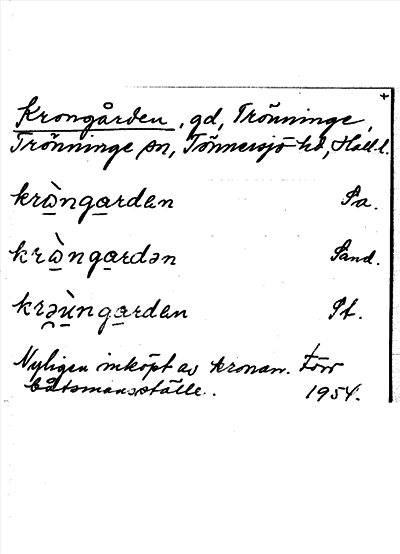 +
Krongården, gd, Trönninge,
Trönninge sn, Tönnersjö hd, Hall.l.
krὰngardən Pa.
krὰngardən Sand.
krəùngardən Pt.
Nyligen inköpt av kronan. Förr
båtsmansställe. 1954.